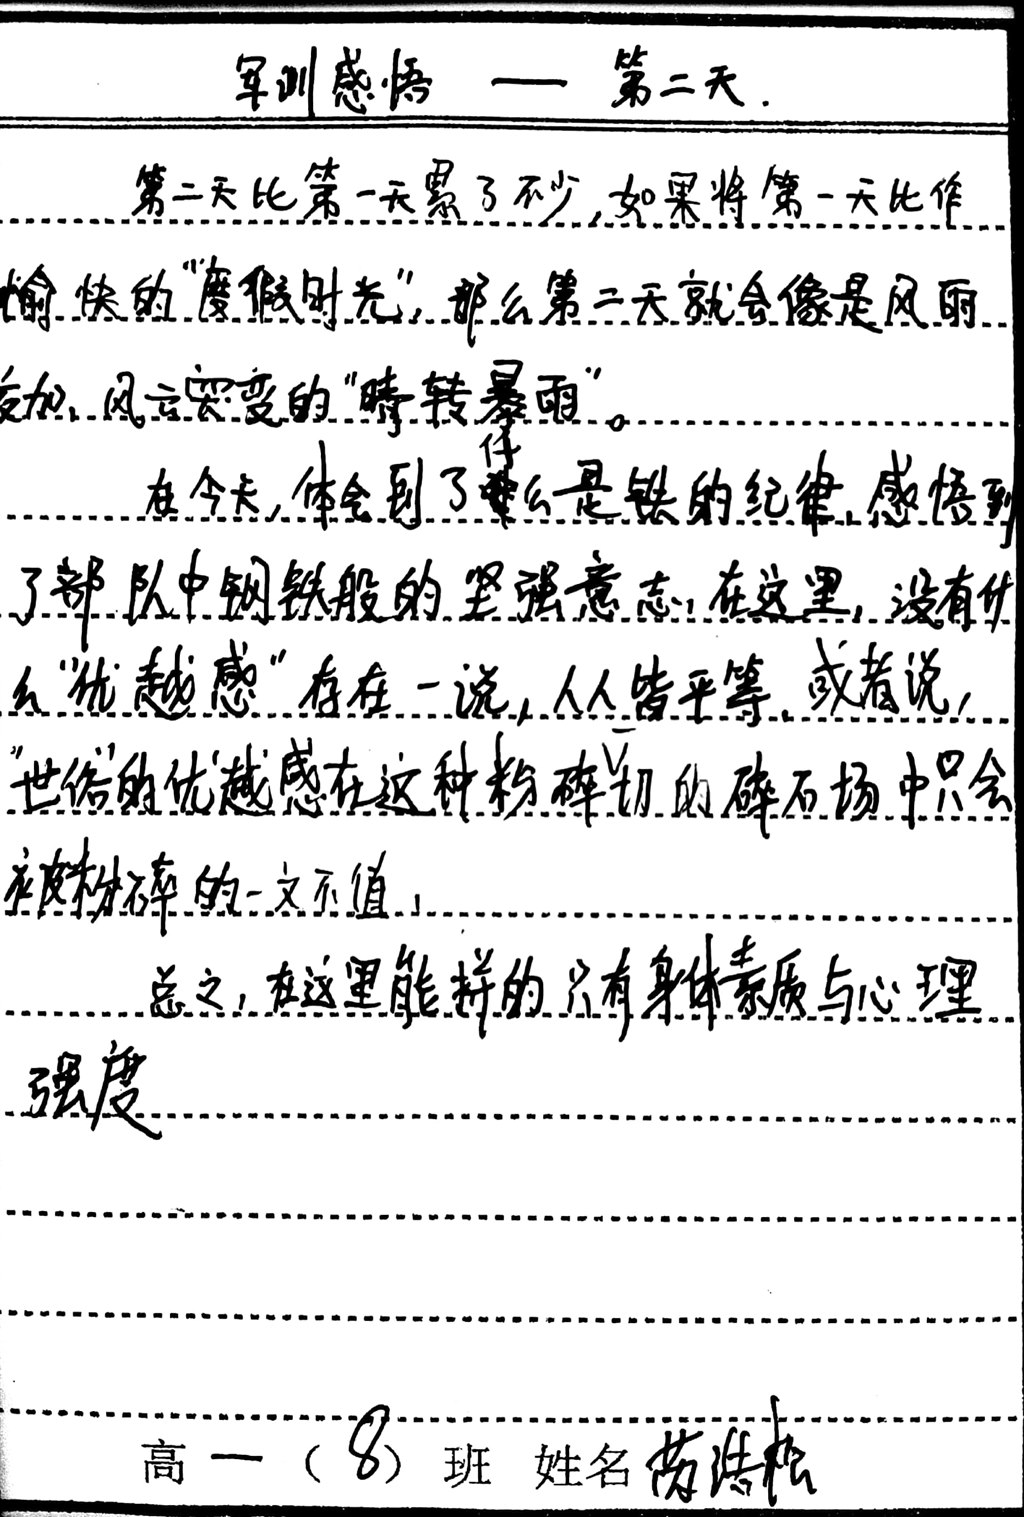 军训感悟 — 第二天.
第二天比第一天累了不少,如果将第一天比作
愉快的"度假时光",那么第二天就会像是风雨
交加、风云突变的"晴转暴雨"。
在今天,体会到了什么是铁的纪律,感悟到
了部队中钢铁般的坚强意志,在这里,没有什
么"优越感"存在一说,人人皆平等,或者说,
"世俗"的优越感在这种粉碎一切的碎石场中只会
被粉碎的一文不值,
总之,在这里能拼的只有身体素质与心理
强度
高一(8)班 姓名 浩松